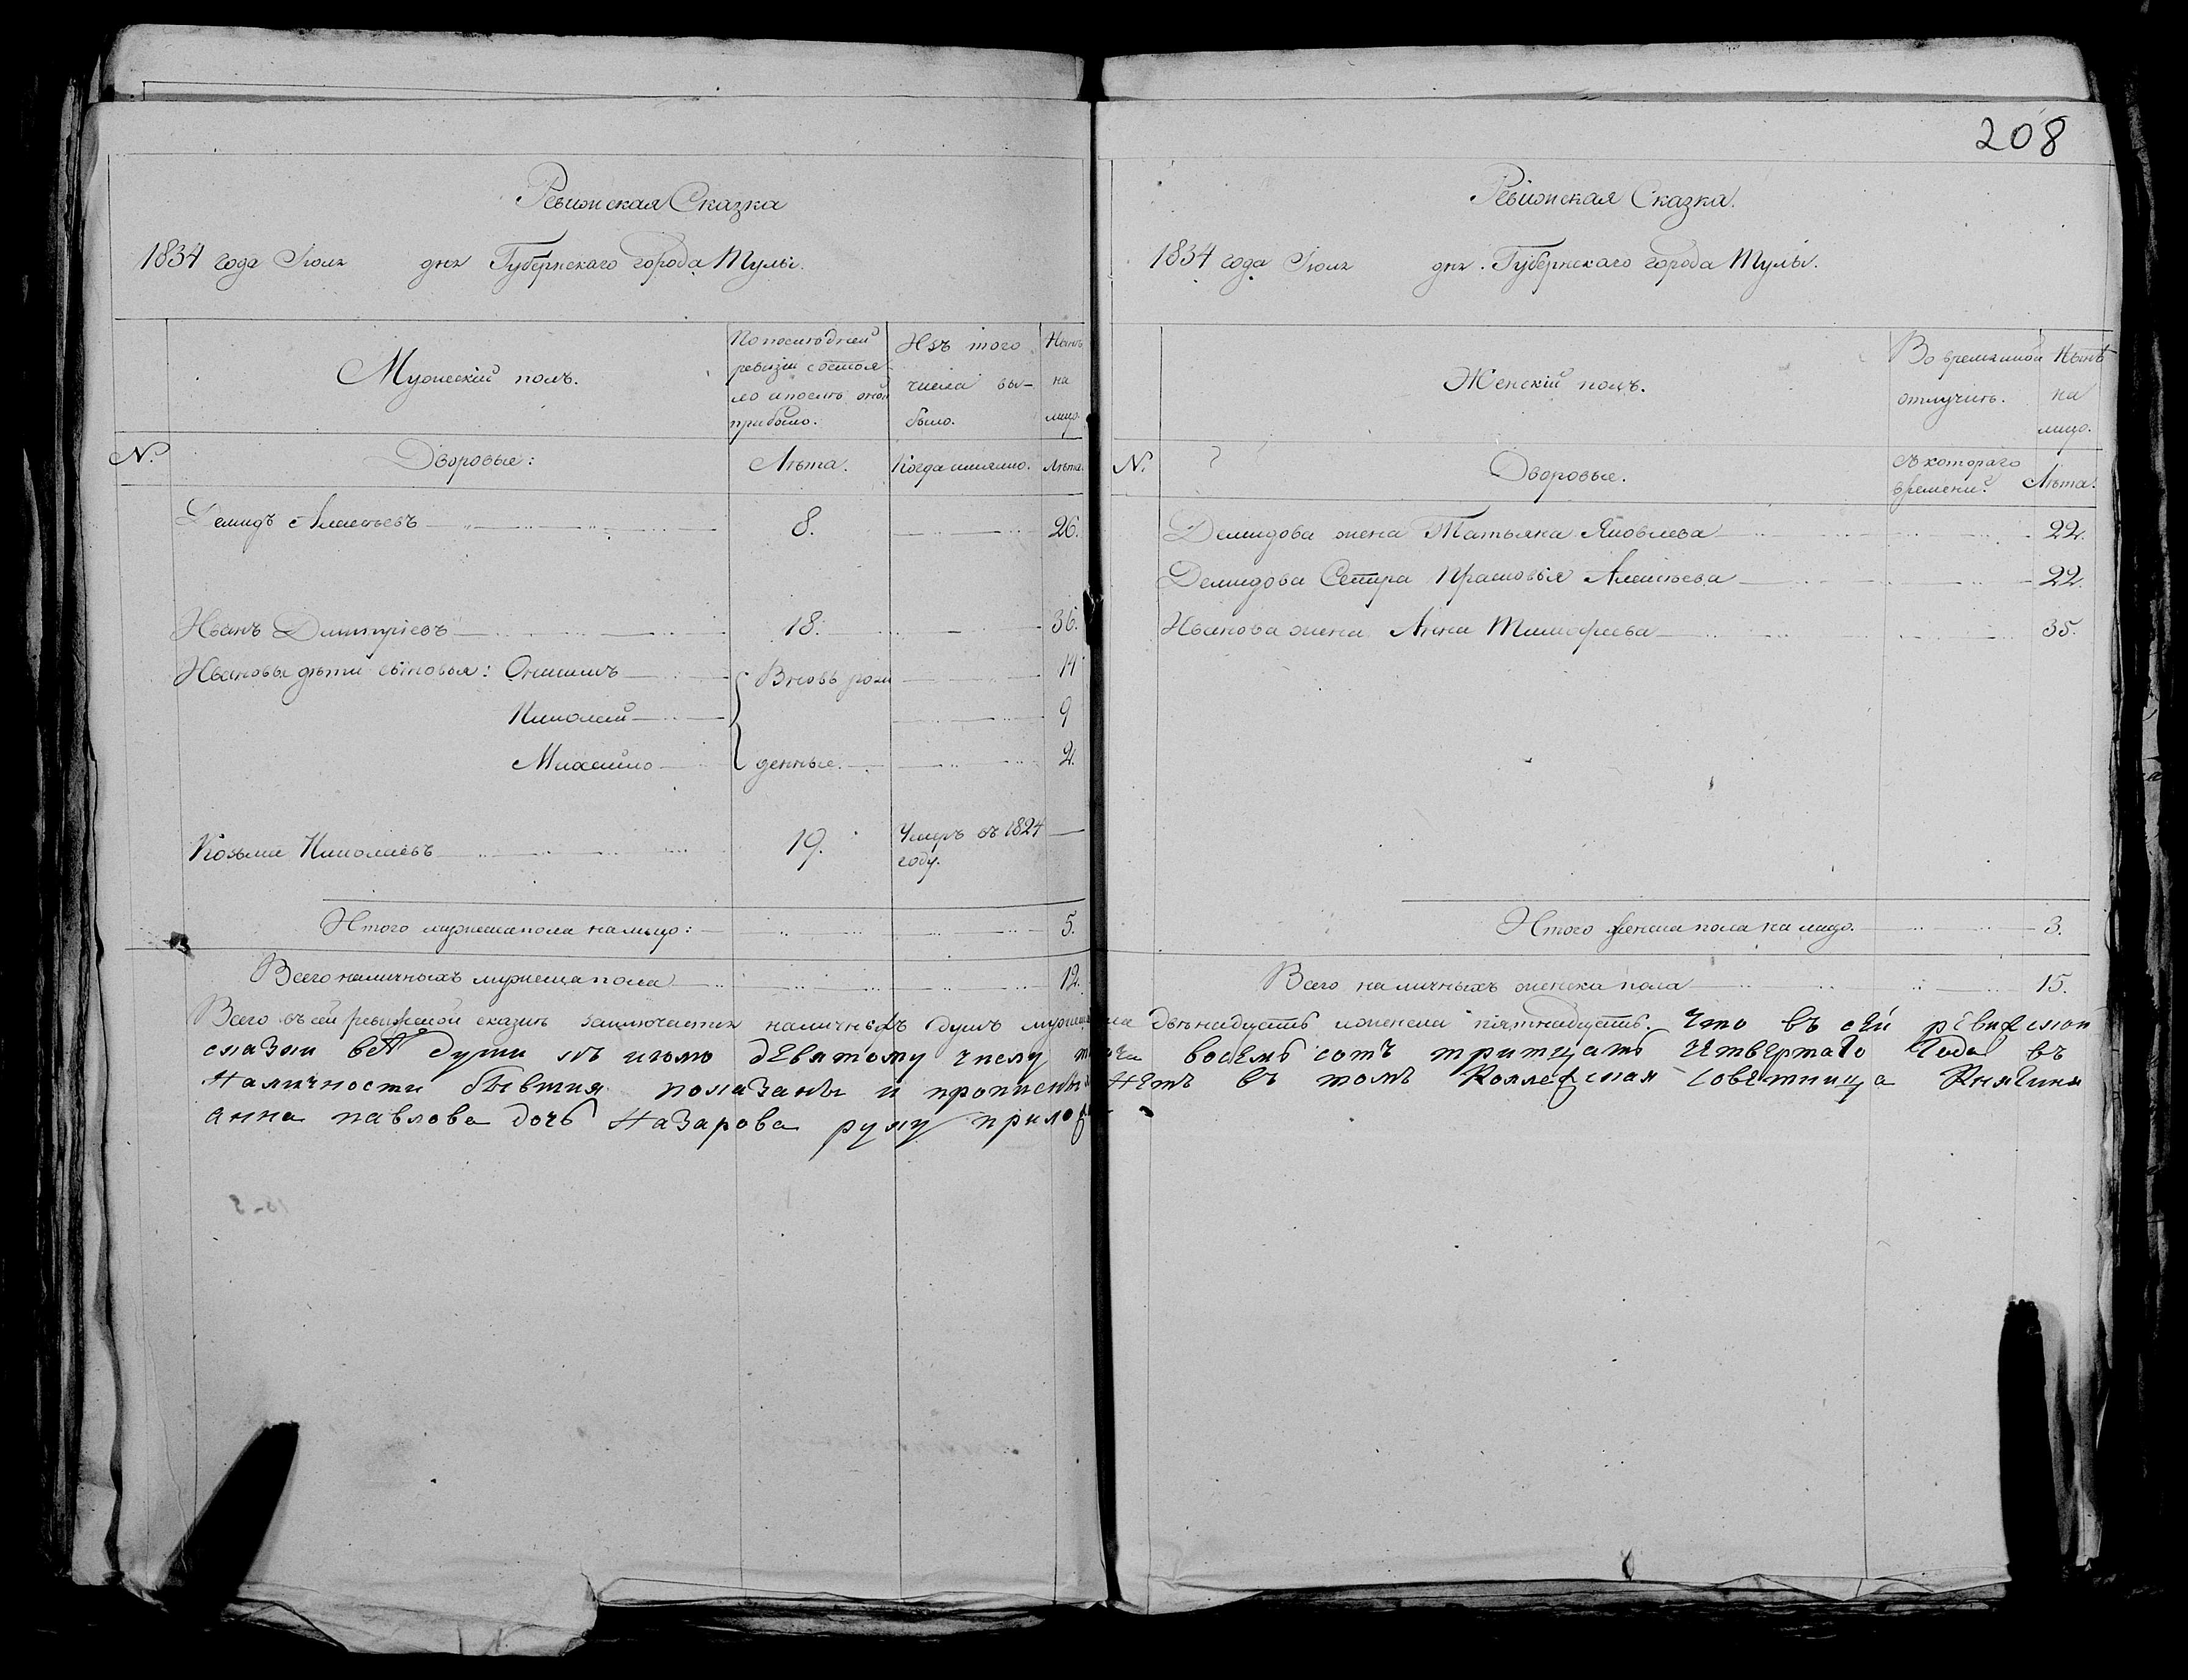 208
Ревижская Сказка
1834 года Іюля дня Губернскаго города Тулы.
Мужескій полъ.
По последней
ревизіи состоя-
ло и после оной
прибыло.
Изъ того
числа вы-
было.
Ныне
на
лицо.
№.
Дворовые:
Лѣта.
Когда имянно.
Лѣта.
Демидъ Алексѣевъ 8. 26.
Иванъ Дмитріевъ 18. 36.
Ивановы дѣти сыновья: Онисимъ Вновь рож 14
Николай 9
Михайло денные. 2.
Козьма Николаевъ 19. Умеръ въ 1824
году.
Итого мужеска пола на лицо: 5.
Всего наличныхъ мужеска пола 12.
Ревижская Сказка.
1834 года Іюля дня. Губернскаго города Тулы.
Женскій полъ.
Во временной
отлучкѣ.
Нынѣ
на
лицо.
№.
Дворовые.
Съ котораго
времени.
Лѣта.
Демидова жена Татьяна Яковлева 22.
Демидова Сестра Прасковья Алексѣева 22.
Иванова жена Анна Тимофеева 35.
Итого женска пола на лицо. 3.
Всего наличныхъ женска пола 15.
Всего въ сей ревижской сказкѣ заключается наличныхъ душъ мужеска двѣнадцать и женска пятнадцать. Что въ сей ревижскои
сказки всѣ души къ июлю девятому числу тысяча восемь сотъ тритцать четвертаго Года въ
наличности бывшия показаны и прописныхъ нетъ въ томъ Коллежская советница Княгиня
анна павлова дочь Назарова руку прилож